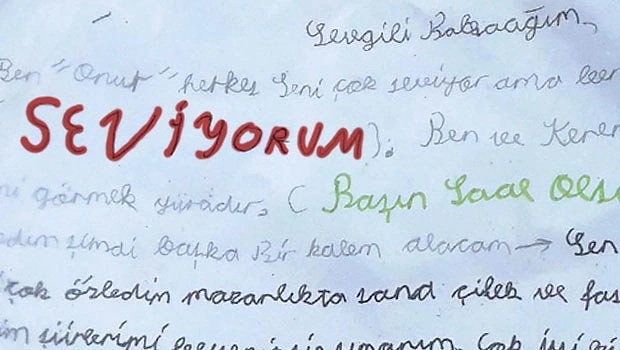 Sevgili Babacağım,
Ben "Onur" herkes seni çok seviyor ama
SEVİYORUM). Ben ve Kerem
görmek yüradır. (Başın Saal Olsu
şimdi başka bir kalem alacam → Sen
çok özledim mazarlıkta sana çilek ve fas
şiirlerimi